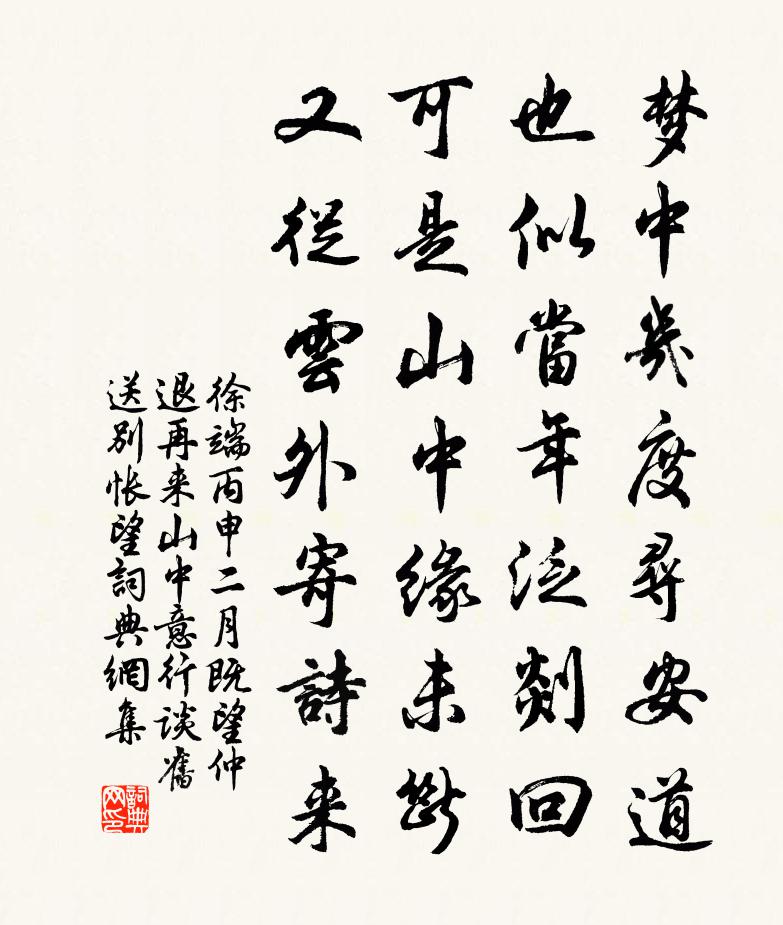 梦中幾度尋安道
也似當年泛剡回
可是山中緣未斷
又從雲外寄詩来
徐端丙申二月既望仲
退再来山中意行談舊
送别怅望詞典網集
詞典网印